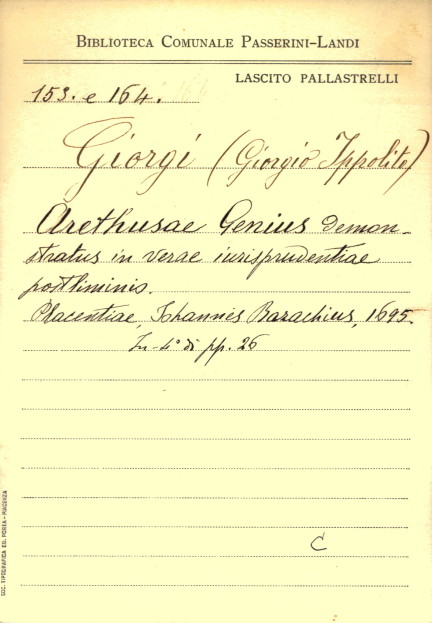 BIBLIOTECA COMUNALE PASSERINI-LANDI
LASCITO PALLASTRELLI
153. e 164.
Giorgi (Giorgio Ippolito)
Arethusae Genius demon-
stratus in verae iurisprudentiae
postliminio.
Placentiae, Iohannes Bazachius, 1695.
In-4° di pp. 26
C
SOC. TIPOGRAFICA ED. POREA - PIACENZA